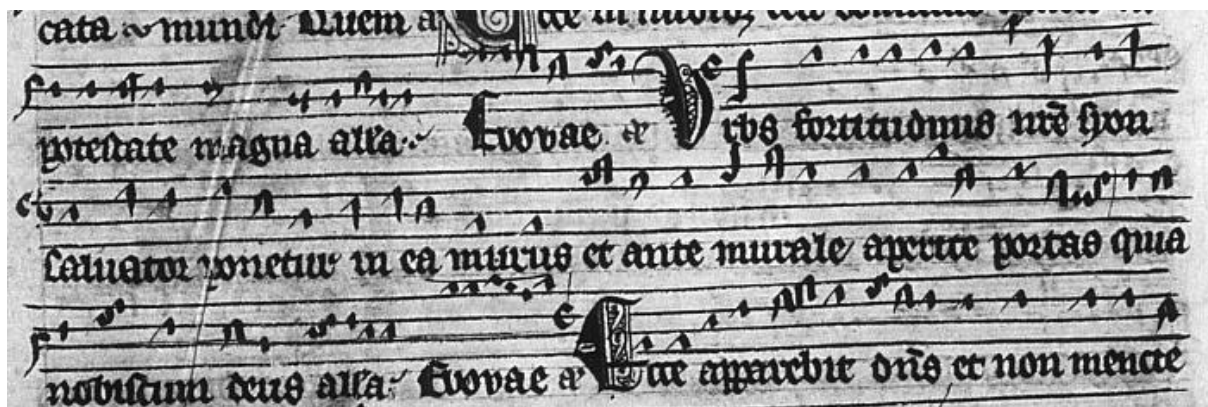 cata mundi Quem a Ecce in nubibꝫ celi dominus
potestate magna all'a. Euouae Vrbs fortitudinis nrē Syon
saluator ponetur in ea murus et ante murale aperite portas quia
nobiscum deus all'a. Euouae Ecce apparebit dn̄s et non mencie